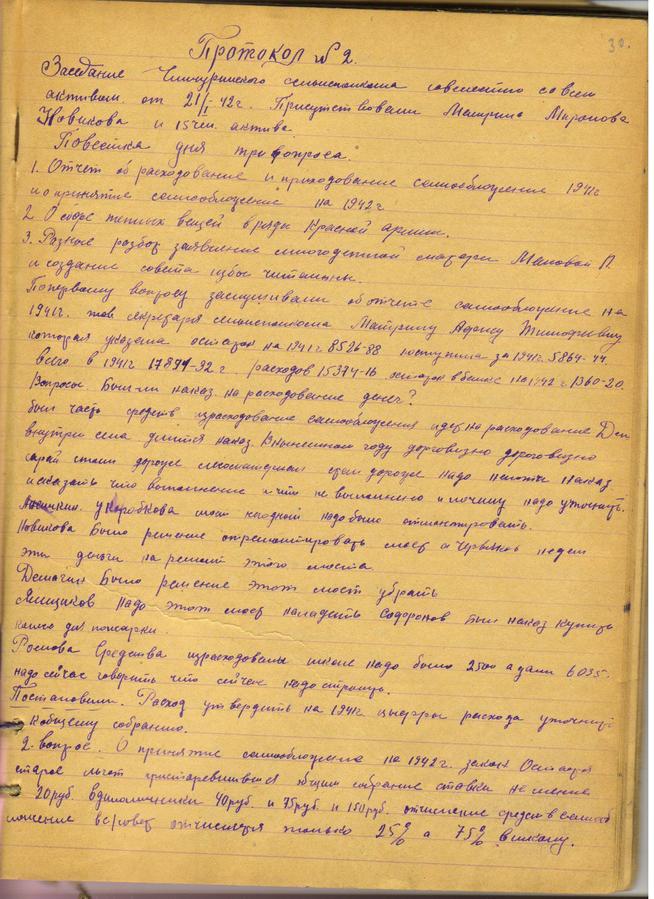 30.
Протокол № 2.
Заседание сельисполкома совместно со всем
активом от 21/I-42 г. Присутствовали Матрина Миронова
Новикова и 15 чел. актива.
Повестка дня три вопроса.
1. Отчет об расходование и приходование самообложение 1941 г
и о принятие самообложение на 1942 г
2. О сборе теплых вещей в ряды Красной армии.
3. Разные разбор заявление многодетной матери П.
и создание совета избы читальны.
По первому вопросу заслушивали об отчете самообложение на
1941 г. тов секретаря сельисполкома Матрину
которая указана остаток на 1941 г 8526-88 поступила за 1941 г. 5864-44
всего в 1941 г расходов остаток в банке на 1942 г 1360-20.
Вопросы. Был-ли наказ. на расходование денег?
был часть средств израсходование самообложения идет на расходование
внутри села наказ. В нынешнем году
сарай стали дороже лесоматериал стал дороже надо наказ
и сказать что выполнено и что не выполнено и почему надо уточнить.
у Коробкова мост негодный надо было отмонтировать.
Новикова Было решение отремонтировать мост а
эти деньги на ремонт этого моста.
Было решение этот мост убрать
Ямщиков надо этот мост наладить был наказ купить
для пожарки.
Рослова Средства израсходованы школе надо было 2500 а дали 6035.
надо сейчас говорить что сейчас надо строить.
Постановили. Расход утвердить на 1941 г. цыфры расхода уточнить
к общему собранию.
2. вопрос. О принятие самообложение на 1942 г. закон Остается
старое общим собрание ставки не менее
20 руб. 40 руб. и 75 руб. и 150 руб. отчисление средств в
отчисляется только 25% а 75% в школу.